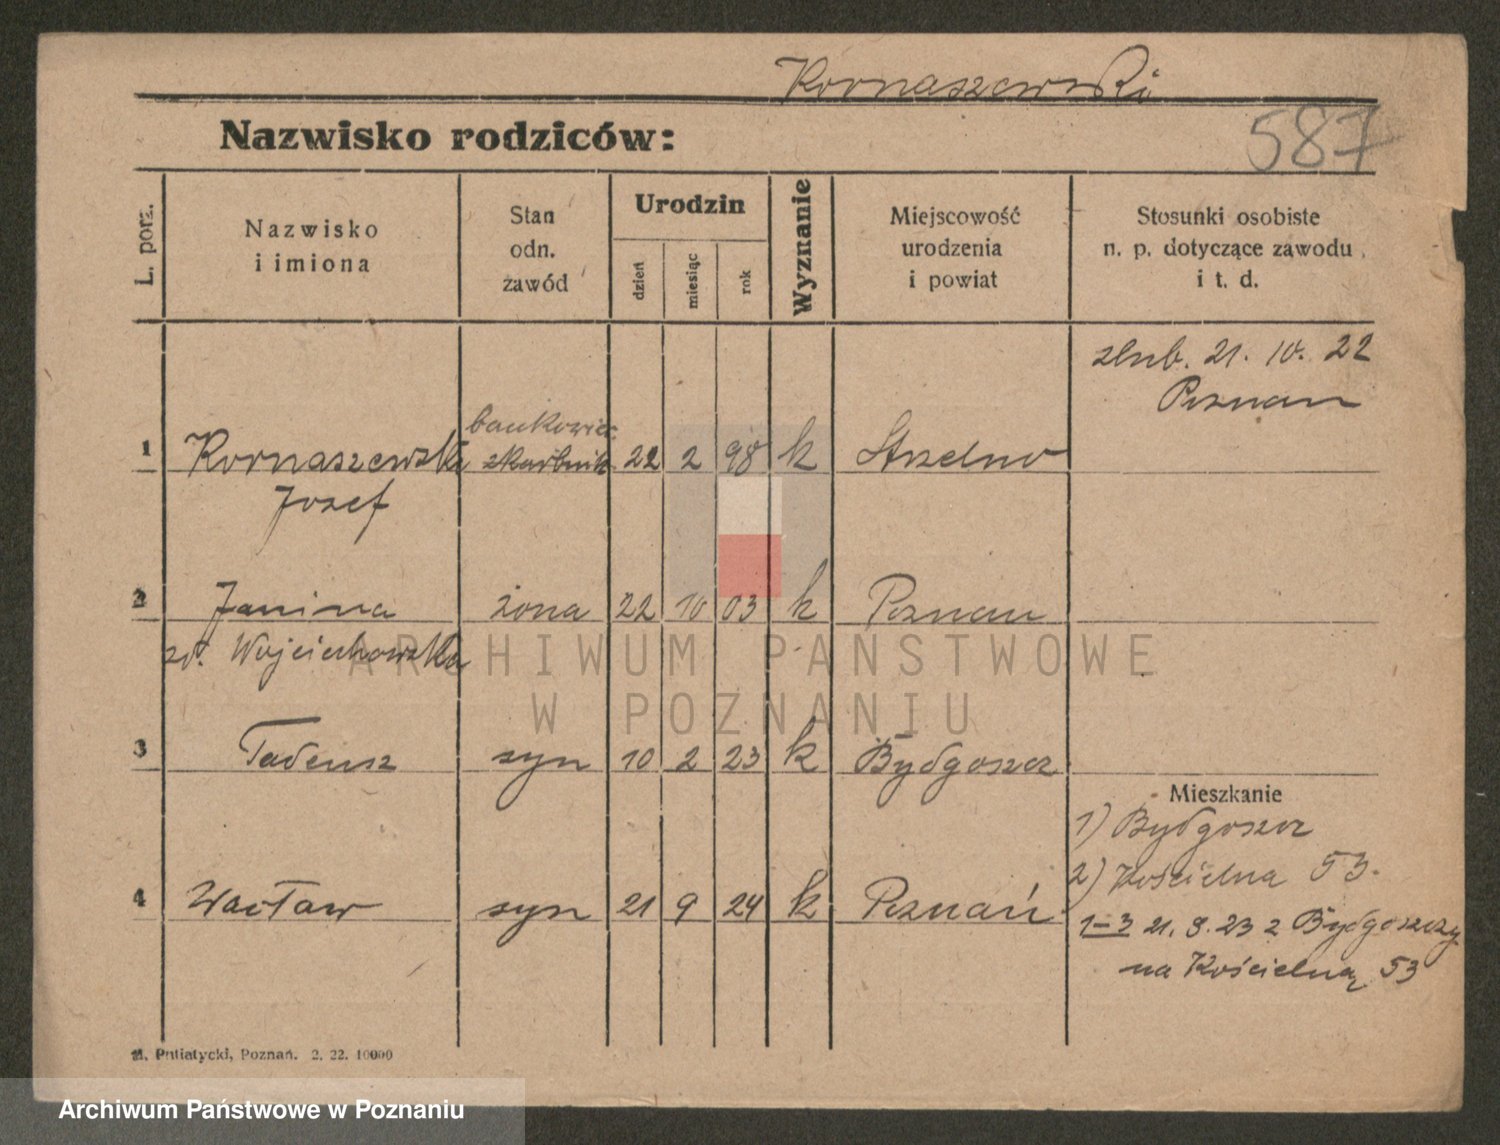 Kornaszewski
Nazwisko rodziców:
587
L. porz.
Nazwisko
i imiona
Stan
odn.
zawód
Urodzin
dzień
miesiąc
rok
Wyznanie
Miejscowość
urodzenia
i powiat
Stosunki osobiste
n. p. dotyczące zawodu
i t. d.
ślub. 21. 10. 22
Poznan
1 Kornaszewski bankowiec skarbnik 22 2 98 k Strzelno
Józef
2 Janina żona 22 10 03 k Poznan
Wojciechowska
3 Tadeusz syn 10 2 23 k Bydgoszcz
Mieszkanie
1) Bydgoszcz
2) Kościelna 53.
4 Wacław syn 21 9 24 k Poznań
1-3 21. 9. 23 z Bydgoszczy
na Kościelną 53
Putiatycki, Poznań. 2. 22. 10000
ARCHIWUM PAŃSTWOWE
W POZNANIU
Archiwum Państwowe w Poznaniu